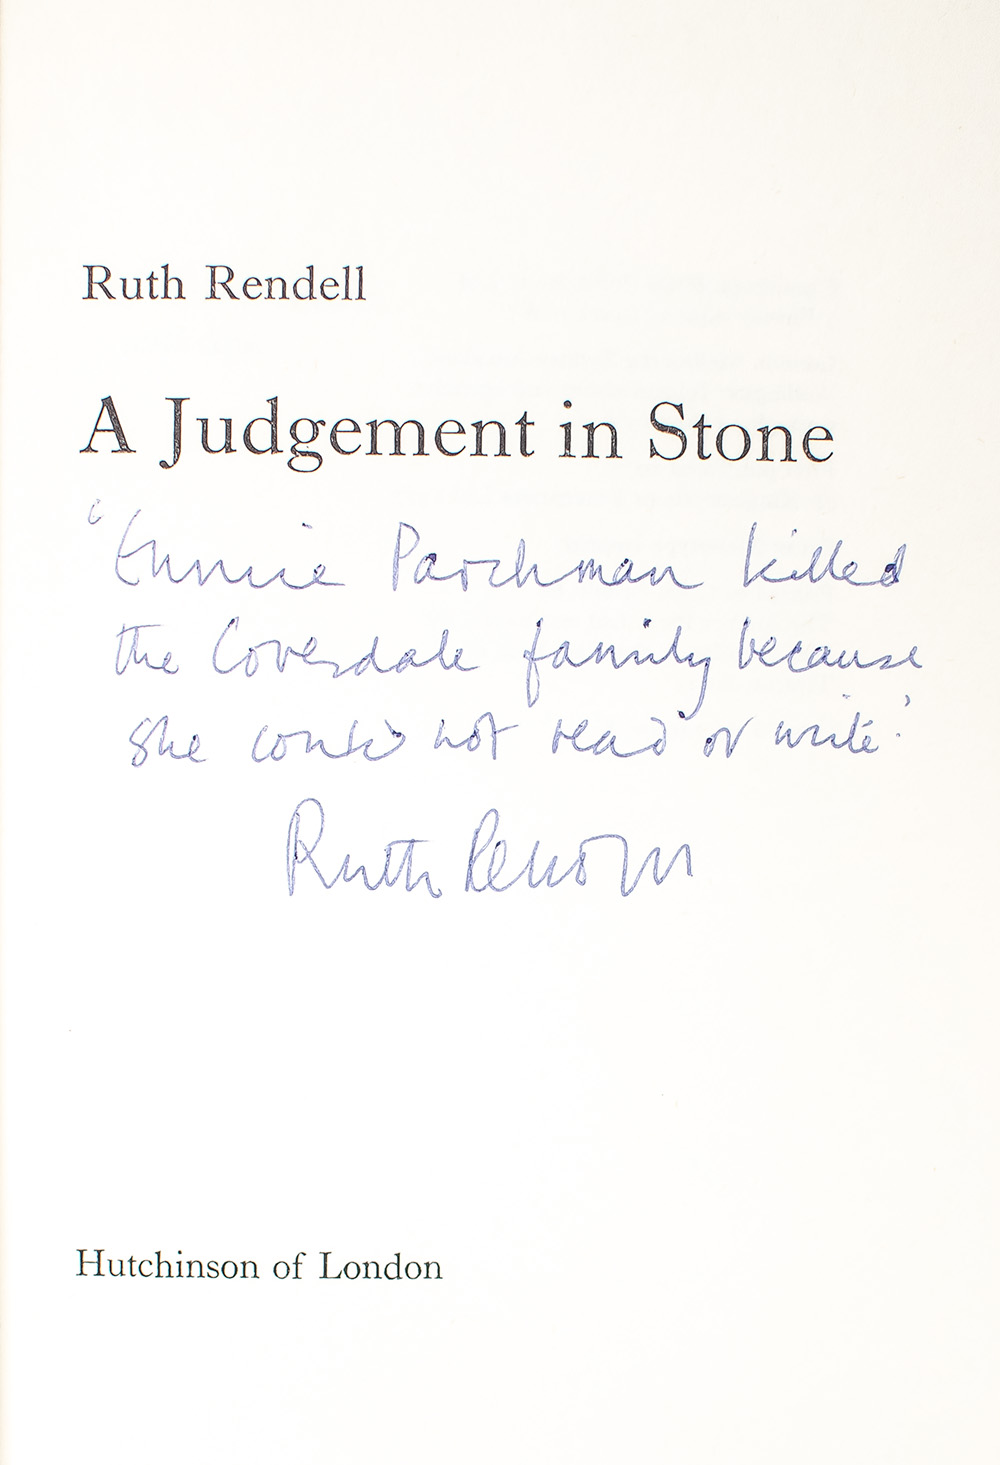 Ruth Rendell
A Judgement in Stone
'Eunice Parchman killed
the Coverdale family because
she could not read or write.'
Ruth Rendell
Hutchinson of London